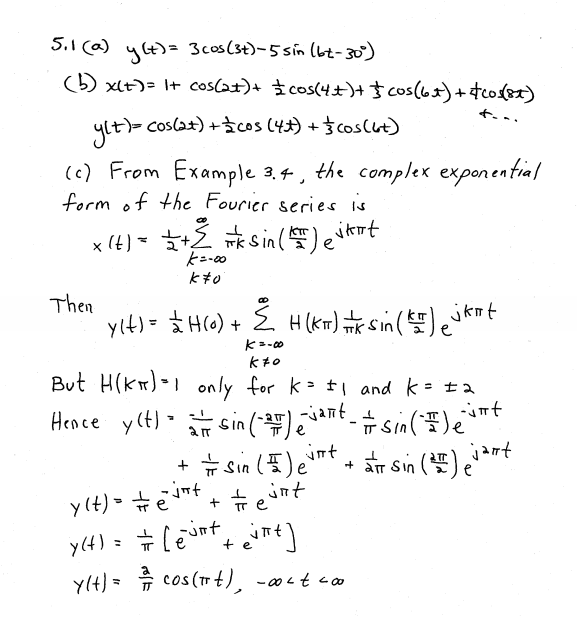 5.1 (a) y(t) = 3cos(3t) - 5 sin (6t - 30°)
(b) x(t) = 1 + cos(2t) + 1/2 cos(4t) + 1/3 cos(6t) + 1/4 cos(8t)
+ ...
y(t) = cos(2t) + 1/2 cos (4t) + 1/3 cos(6t)
(c) From Example 3.4, the complex exponential
form of the Fourier series is
x(t) = 1/2 + ∑_{k=-∞, k≠0}^{∞} 1/(πk) sin(kπ/2) e^{jkπt}
Then
y(t) = 1/2 H(0) + ∑_{k=-∞, k≠0}^{∞} H(kπ) 1/(πk) sin(kπ/2) e^{jkπt}
But H(kπ) = 1 only for k = ±1 and k = ±2
Hence y(t) = -1/(2π) sin(-2π/π) e^{-j2πt} - 1/π sin(-π/2) e^{-jπt}
+ 1/π sin(π/2) e^{jπt} + 1/(2π) sin(2π/2) e^{j2πt}
y(t) = 1/π e^{-jπt} + 1/π e^{jπt}
y(t) = 1/π [e^{-jπt} + e^{jπt}]
y(t) = 2/π cos(πt), -∞ < t < ∞